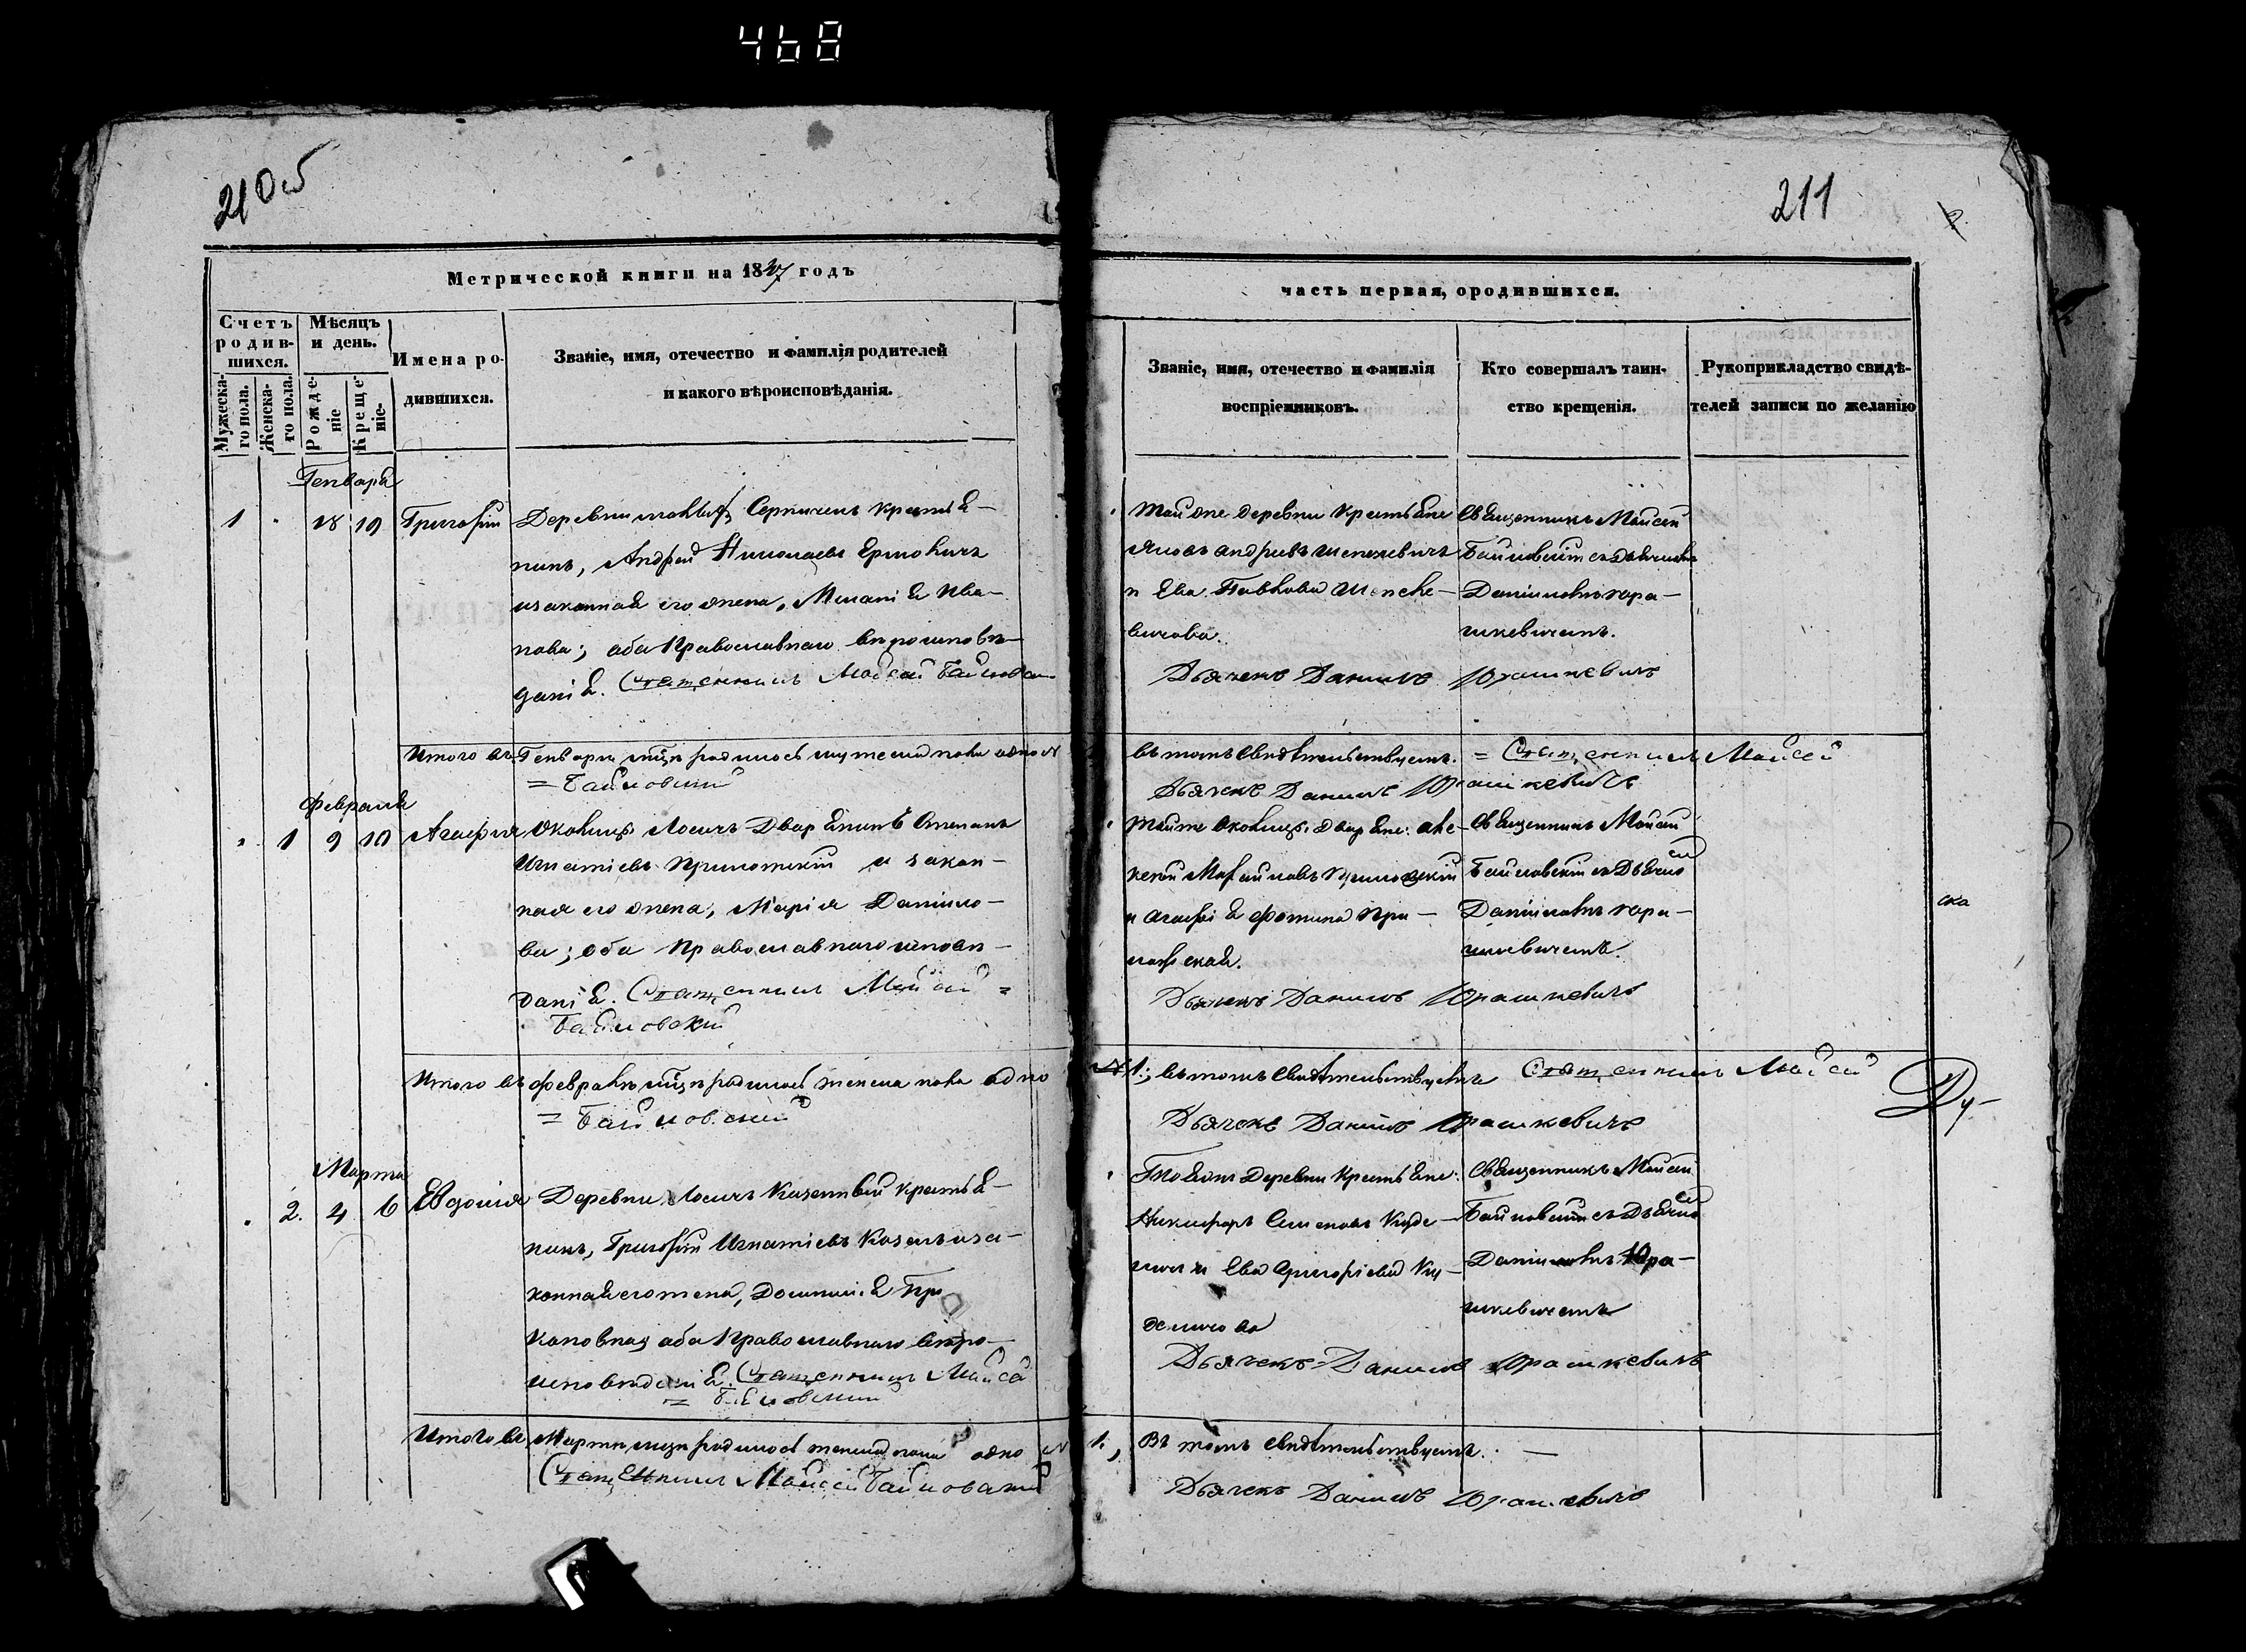 468
210 об
211
Метрической книги на 1847 годъ
часть первая, ородившихся.
Счетъ родив-
шихся.
Мужеска-
го пола.
Женска-
го пола.
Мѣсяцъ
и день.
Рожде-
ніе
Креще-
ніе.
Имена ро-
дившихся.
Званіе, имя, отечество и фамилія родителей
и какого вѣроисповѣданія.
Званіе, имя, отечество и фамилія
воспріемниковъ.
Кто совершалъ таин-
ство крещенія.
Рукоприкладство свидѣ-
телей записи по желанію
Генваря
1 18 19 Григорій
Деревни Серничекъ крестья-
нинъ, Андрей Николаевъ Ермоличъ
изаконная его жена, Меланія Ива-
нова; оба Православнаго вѣроисповѣ-
данія. Священникъ Мойсей Байловскій
Тойже деревни Крестьяне
Яковъ Андреевъ
и Ева Павлова
вичова.
Дьячекъ Данилъ Юрашкевичъ
Священникъ Мойсей
Байловскій съ дьячкомъ
Даніиломъ Юра-
шкевичемъ.
Итого въ Генварѣ мцѣ родилось мужеска пола одно
= Байловскій
въ томъ свидѣтельствуемъ. = Священникъ Мойсей
Дьячекъ Данилъ Юрашкевичъ
Февраля
1 9 10 Агафія
Околицы Лосичъ Дворянинъ Степанъ
Игнатіевъ Прилотскій и закон-
ная его жена, Марія Даніило-
ва; оба Православнаго исповѣ-
данія. Священникъ Мойсей =
Байловскій
Тойже Околицы Дворяне: Але-
ксей
и Агафія Фомина При-
Дьячекъ Данилъ Юрашкевичъ
Священникъ Мойсей
Байловскій съ Дьячкомъ
Даніиломъ Юра-
шкевичемъ.
ска
Итого въ февралѣ мцѣ родилось женска пола одно
= Байловскій
№ 1; въ томъ свидѣтельствуемъ Священникъ Мойсей
Дьячекъ Данилъ Юрашкевичъ
Ду-
Марта
2. 4 6 Евдокія
Деревни Лосичъ Казенный крестья-
нинъ, Григорій Игнатіевъ Козелъ иза-
конная его жена, Домникія Про
коповна; оба Православнаго вѣро-
исповѣданія. Священникъ Мойсей
= Байловскій
Тоеяжъ Деревни Крестьяне:
Никифоръ Семеновъ Куде-
и Ева Григоріева Ку-
Дьячекъ = Данилъ Юрашкевичъ
Священникъ Мойсей
Байловскій съ Дьячкомъ
Даніиломъ Юра-
шкевичемъ
Итого въ Мартѣ мцѣ родилось женска пола одно №
Священникъ Мойсей Байловскій
1., Въ томъ свидѣтельствуемъ. —
Дьячекъ Данилъ Юрашкевичъ